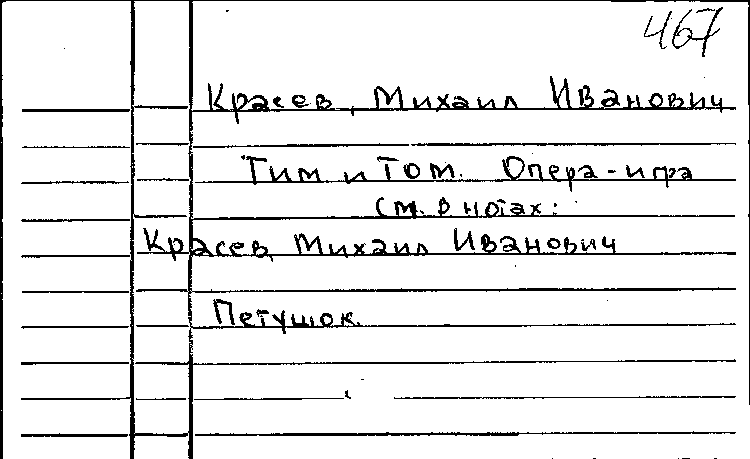 467
Красев, Михаил Иванович
Тим и Том. Опера-игра
См. в нотах:
Красев, Михаил Иванович
Петушок.